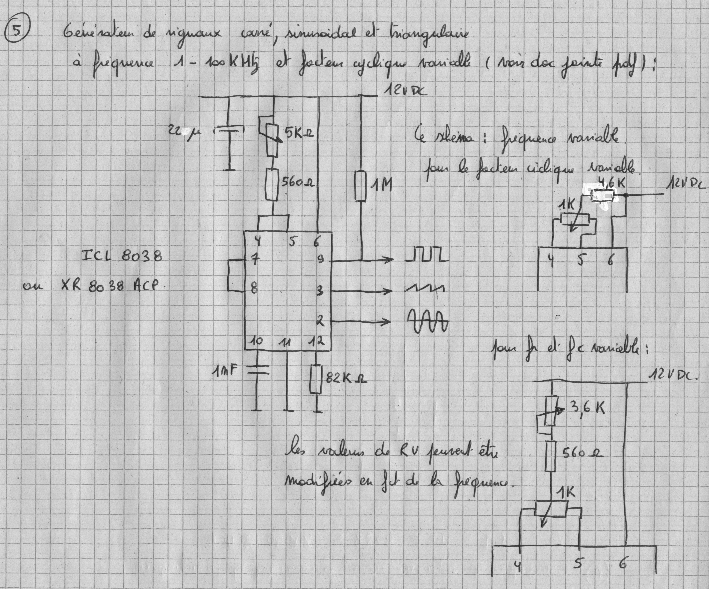 5
Générateur de signaux carré, sinusoïdal et triangulaire
à fréquence 1-100KHz et facteur cyclique variable (voir doc jointe pdf) :
12VDC
22 µ
5KΩ
560Ω
1M
Ce shéma : fréquence variable
pour le facteur ciclique variable.
4,6K
12VDC
1K
4 5 6
ICL 8038
ou XR 8038 ACP.
4 5 6
7 9
8 3
2
10 11 12
1nF
82KΩ
pour fr et fc variable :
12VDC.
3,6K
560Ω
1K
4 5 6
les valeurs de RV peuvent être
modifiées en fct de la fréquence.